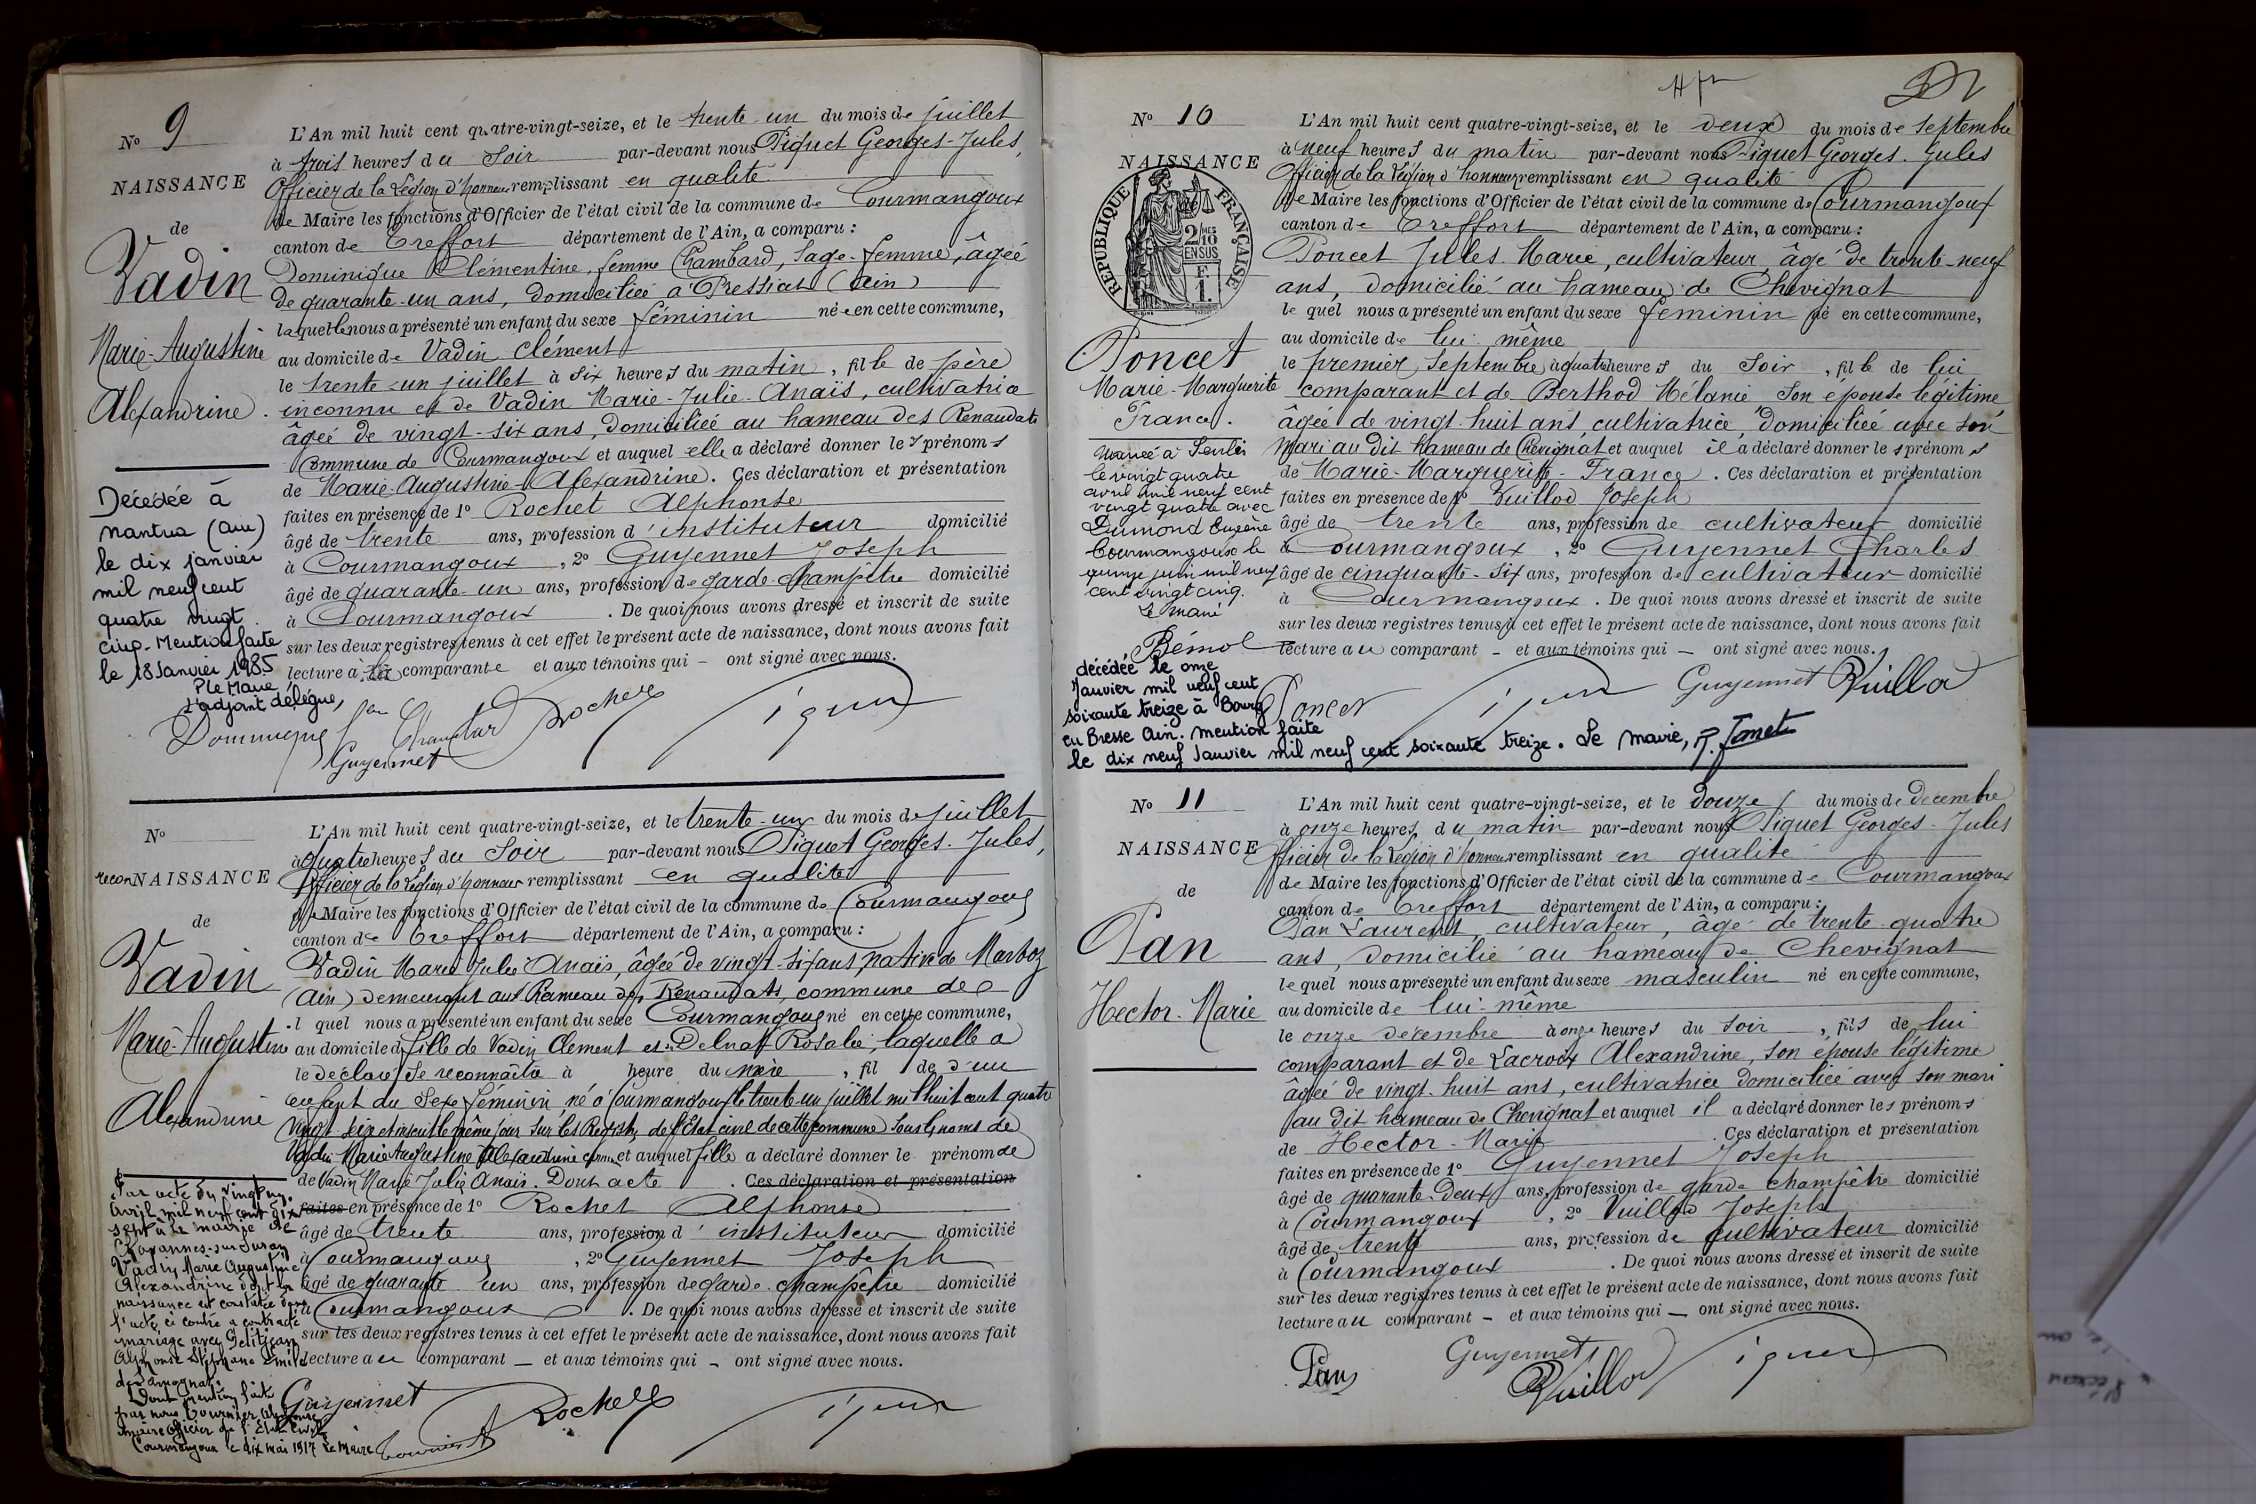 N° 9
NAISSANCE
de
Vadin
Marie-Augustine
Alexandrine.
L'An mil huit cent quatre-vingt-seize, et le trente-un du mois de juillet
à trois heures du soir par-devant nous Piquet Georges-Jules,
Officier de la Légion d'honneur remplissant en qualité
de Maire les fonctions d'Officier de l'état civil de la commune de Courmangoux
canton de Treffort département de l'Ain, a comparu :
Dominique Clémentine, femme Chambard, Sage-femme, âgée
de quarante-un ans, domiciliée à Pressiat (Ain)
laquelle nous a présenté un enfant du sexe féminin né e en cette commune,
au domicile de Vadin Clément
le trente-un juillet à six heures du matin, fille de père
inconnu et de Vadin Marie-Julie-Anaïs, cultivatrice
âgée de vingt-six ans, domiciliée au hameau des Renaudats
Commune de Courmangoux et auquel elle a déclaré donner les prénoms
de Marie-Augustine-Alexandrine. Ces déclaration et présentation
faites en présence de 1° Rochet Alphonse
âgé de trente ans, profession d'instituteur domicilié
à Courmangoux, 2° Guyennet Joseph
âgé de quarante-un ans, profession de garde-champêtre domicilié
à Courmangoux. De quoi nous avons dressé et inscrit de suite
sur les deux registres tenus à cet effet le présent acte de naissance, dont nous avons fait
lecture à la comparante et aux témoins qui - ont signé avec nous.
Décédée à
Nantua (Ain)
le dix janvier
mil neuf cent
quatre vingt
cinq. Mention faite
le 18 Janvier 1985
P le Maire
L'adjoint délégué,
Dominique fem Chambard Rochet
Guyennet
N°
recon NAISSANCE
de
Vadin
Marie-Augustine
Alexandrine
L'An mil huit cent quatre-vingt-seize, et le trente-un du mois de juillet
à quatre heures du soir par-devant nous Piquet Georges-Jules,
Officier de la Légion d'honneur remplissant en qualité
de Maire les fonctions d'Officier de l'état civil de la commune de Courmangoux
canton de Treffort département de l'Ain, a comparu :
Vadin Marie Julie Anaïs, âgée de vingt-six ans native de Marboz
(Ain) demeurant au Hameau des Renaudats, commune de
l quel nous a présenté un enfant du sexe Courmangoux né en cette commune,
au domicile d fille de Vadin Clement et Delnaff Rosalie, laquelle a
le declaré se reconnaître à heure du mère, fil de d'un
enfant du Sexe féminin, né à Courmangoux le trente-un juillet mil huit cent quatre
vingt seize et inscrit le même jour sur les Registres de l'Etat civil de cette commune sous les noms de
Vadin Marie Augustine Alexandrine comme et auquel fille a déclaré donner le prénom de
de Vadin Marie Julie Anaïs. Dont acte. Ces déclaration et présentation
faites en présence de 1° Rochet Alphonse
âgé de trente ans, profession d'instituteur domicilié
à Courmangoux, 2° Guyennet Joseph
âgé de quarante un ans, profession de garde-champêtre domicilié
à Courmangoux. De quoi nous avons dressé et inscrit de suite
sur les deux registres tenus à cet effet le présent acte de naissance, dont nous avons fait
lecture au comparant - et aux témoins qui - ont signé avec nous.
Par acte du vingt un
avril mil neuf cent dix
sept à la mairie de
Chavannes-sur-Suran
Vadin Marie Augustine
Alexandrine dont la
naissance est constatée dans
l'acte ci contre a contracté
mariage avec Petitjean
Alphonse Stéphane Emile
de
Dont mention faite
par nous Tournier Alphonse
maire officier de l'Etat civil
Courmangoux le dix mai 1917 Le Maire
Guyennet Rochet
N° 10
NAISSANCE
REPUBLIQUE FRANÇAISE
2/10 MES
EN SUS
F.
1.
Poncet
Marie-Marguerite
France.
L'An mil huit cent quatre-vingt-seize, et le deux du mois de septembre
à neuf heures du matin par-devant nous Piquet Georges-Jules
Officier de la Légion d'honneur remplissant en qualité
de Maire les fonctions d'Officier de l'état civil de la commune de Courmangoux
canton de Treffort département de l'Ain, a comparu :
Poncet Jules-Marie, cultivateur, âgé de trente-neuf
ans, domicilié au hameau de Chevignat
lequel nous a présenté un enfant du sexe féminin né en cette commune,
au domicile de lui-même
le premier septembre à quatre heures du soir, fille de lui
comparant et de Berthod Mélanie son épouse légitime
âgée de vingt-huit ans, cultivatrice, domiciliée avec son
mari au dit hameau de Chevignat et auquel il a déclaré donner les prénoms
de Marie-Marguerite-France. Ces déclaration et présentation
faites en présence de 1° Vuillod Joseph
âgé de trente ans, profession de cultivateur domicilié
à Courmangoux, 2° Guyennet Charles
âgé de cinquante-six ans, profession de cultivateur domicilié
à Courmangoux. De quoi nous avons dressé et inscrit de suite
sur les deux registres tenus à cet effet le présent acte de naissance, dont nous avons fait
lecture au comparant - et aux témoins qui - ont signé avec nous.
Mariée à Senlis
le vingt quatre
avril mil neuf cent
vingt quatre avec
Dumond Eugène
Courmangoux le
quinze juin mil neuf
cent vingt cinq.
Le maire
Bémol
Poncet Guyennet Vuillod
décédée le onze
Janvier mil neuf cent
soixante treize à Bourg
en Bresse Ain. mention faite
le dix neuf Janvier mil neuf cent soixante treize. Le maire,
N° 11
NAISSANCE
de
Pan
Hector-Marie
L'An mil huit cent quatre-vingt-seize, et le douze du mois de décembre
à onze heures du matin par-devant nous Piquet Georges-Jules
Officier de la Légion d'honneur remplissant en qualité
de Maire les fonctions d'Officier de l'état civil de la commune de Courmangoux
canton de Treffort département de l'Ain, a comparu :
Pan Laurent, cultivateur, âgé de trente-quatre
ans, domicilié au hameau de Chevignat
lequel nous a présenté un enfant du sexe masculin né en cette commune,
au domicile de lui-même
le onze décembre à onze heures du soir, fils de lui
comparant et de Lacroix Alexandrine, son épouse légitime
âgée de vingt-huit ans, cultivatrice domiciliée avec son mari
au dit hameau de Chevignat et auquel il a déclaré donner les prénoms
de Hector-Marie. Ces déclaration et présentation
faites en présence de 1° Guyennet Joseph
âgé de quarante-deux ans, profession de garde champêtre domicilié
à Courmangoux, 2° Vuillod Joseph
âgé de trente ans, profession de cultivateur domicilié
à Courmangoux. De quoi nous avons dressé et inscrit de suite
sur les deux registres tenus à cet effet le présent acte de naissance, dont nous avons fait
lecture au comparant - et aux témoins qui - ont signé avec nous.
Pan Guyennet
Vuillod